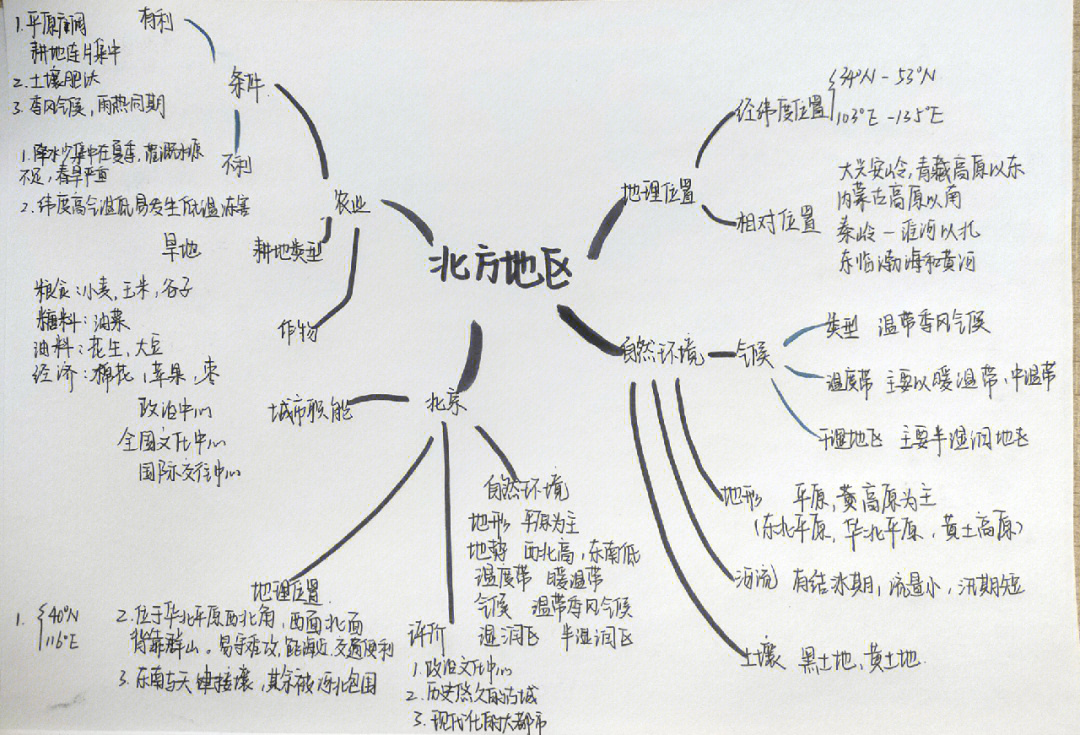 北方地区
地理位置
经纬度位置
34°N-53°N
103°E-135°E
相对位置
大兴安岭,青藏高原以东
内蒙古高原以南
秦岭-淮河以北
东临渤海和黄河
自然环境
气候
类型 温带季风气候
温度带 主要以暖温带,中温带
干湿地区 主要半湿润地区
地形 平原,黄高原为主
(东北平原,华北平原,黄土高原)
河流 有结冰期,流量小,汛期短
土壤 黑土地,黄土地
北京
自然环境
地形 平原为主
地势 西北高,东南低
温度带 暖温带
气候 温带季风气候
湿润区 半湿润区
评价
1.政治文化中心
2.历史悠久的古城
3.现代化的大都市
地理位置
1. 40°N
116°E
2.位于华北平原西北角,西面北面
背靠群山。易守难攻,距海近,交通便利
3.东南与天津接壤,其余被河北包围
城市职能
政治中心
全国文化中心
国际交往中心
农业
条件
有利
1.平原广阔
耕地连片集中
2.土壤肥沃
3.季风气候,雨热同期
不利
1.降水少集中在夏季,灌溉水源
不足,春旱严重
2.纬度高气温低易发生低温冻害
耕地类型
旱地
作物
粮食:小麦,玉米,谷子
糖料:油菜
油料:花生,大豆
经济:棉花,苹果,枣